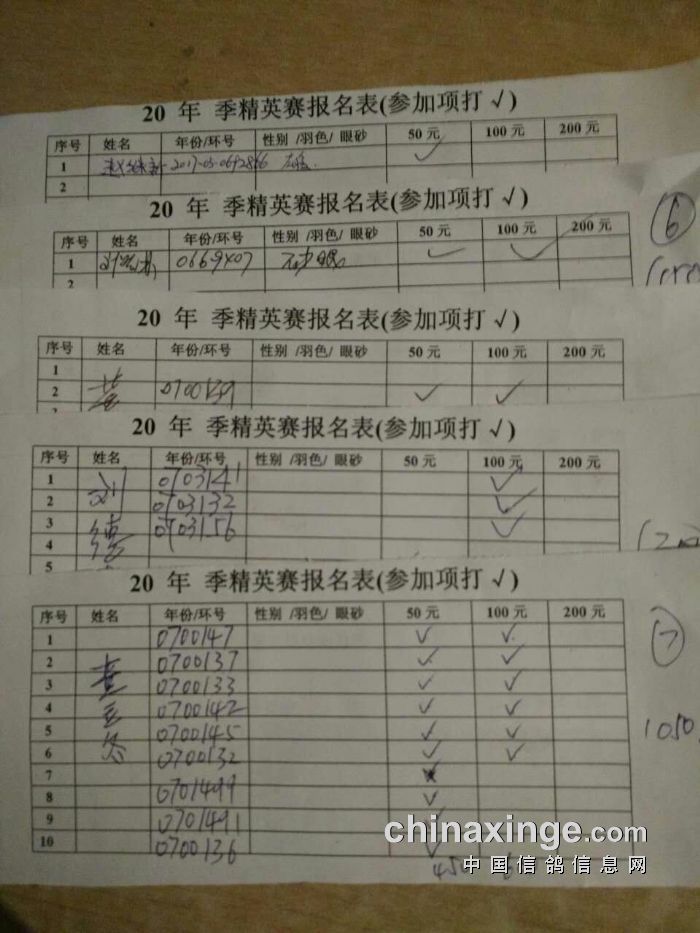 20 年 季精英赛报名表(参加项打 √)
序号 姓名 年份/环号 性别 /羽色/ 眼砂 50 元 100 元 200 元
1 2017-03-0692866 ✓
2
20 年 季精英赛报名表(参加项打 √)
序号 姓名 年份/环号 性别 /羽色/ 眼砂 50 元 100 元 200 元
1 0669407 ✓ ✓
2
6
20 年 季精英赛报名表(参加项打 √)
序号 姓名 年份/环号 性别 /羽色/ 眼砂 50 元 100 元 200 元
1
2 0700139 ✓ ✓
20 年 季精英赛报名表(参加项打 √)
序号 姓名 年份/环号 性别 /羽色/ 眼砂 50 元 100 元 200 元
1 刘 0703141 ✓
2 0703132 ✓
3 德 0703156 ✓
4
5
20 年 季精英赛报名表(参加项打 √)
序号 姓名 年份/环号 性别 /羽色/ 眼砂 50 元 100 元 200 元
1 0700147 ✓ ✓
2 0700137 ✓ ✓
3 0700133 ✓ ✓
4 0700142 ✓ ✓
5 0700145 ✓ ✓
6 0700132 ✓ ✓
7
8 0701499 ✓
9 0701491
10 0700136 ✓
7
1050
450
chinaxinge.com
中国信鸽信息网